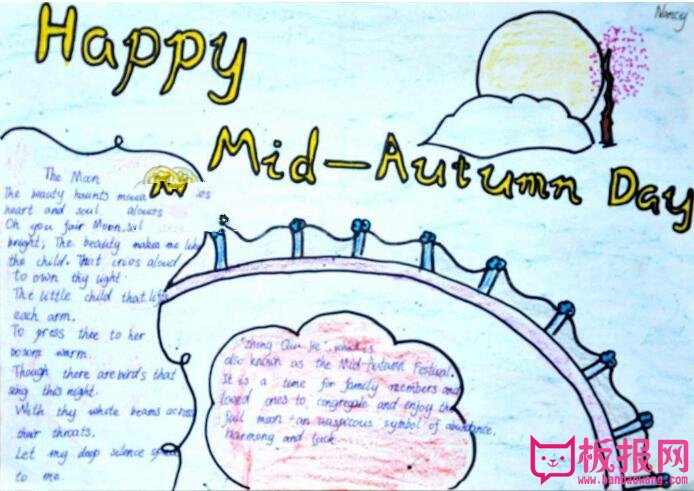 Nancy
Happy
Mid-Autumn Day
The Moon
The beauty haunts
heart and soul.
Oh you fair Moon,
bright; The beauty makes me like
the child. That cries aloud
to own thy light.
The little child that lifts
each arm,
To press thee to her
bosom warm.
Though there are birds that
sing this night.
With thy white beams across
their throats.
Let my deep silence
to me.
"zhong Qiu Jie", which is
also known as the Mid-Autumn Festival.
It is a time for family members and
loved ones to congregate and enjoy the
full moon - an auspicious symbol of abundance,
harmony and luck.
板报网
www.banbaowang.com